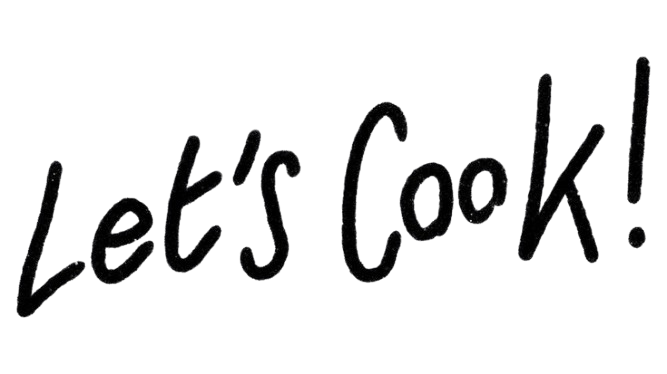 Let's Cook!